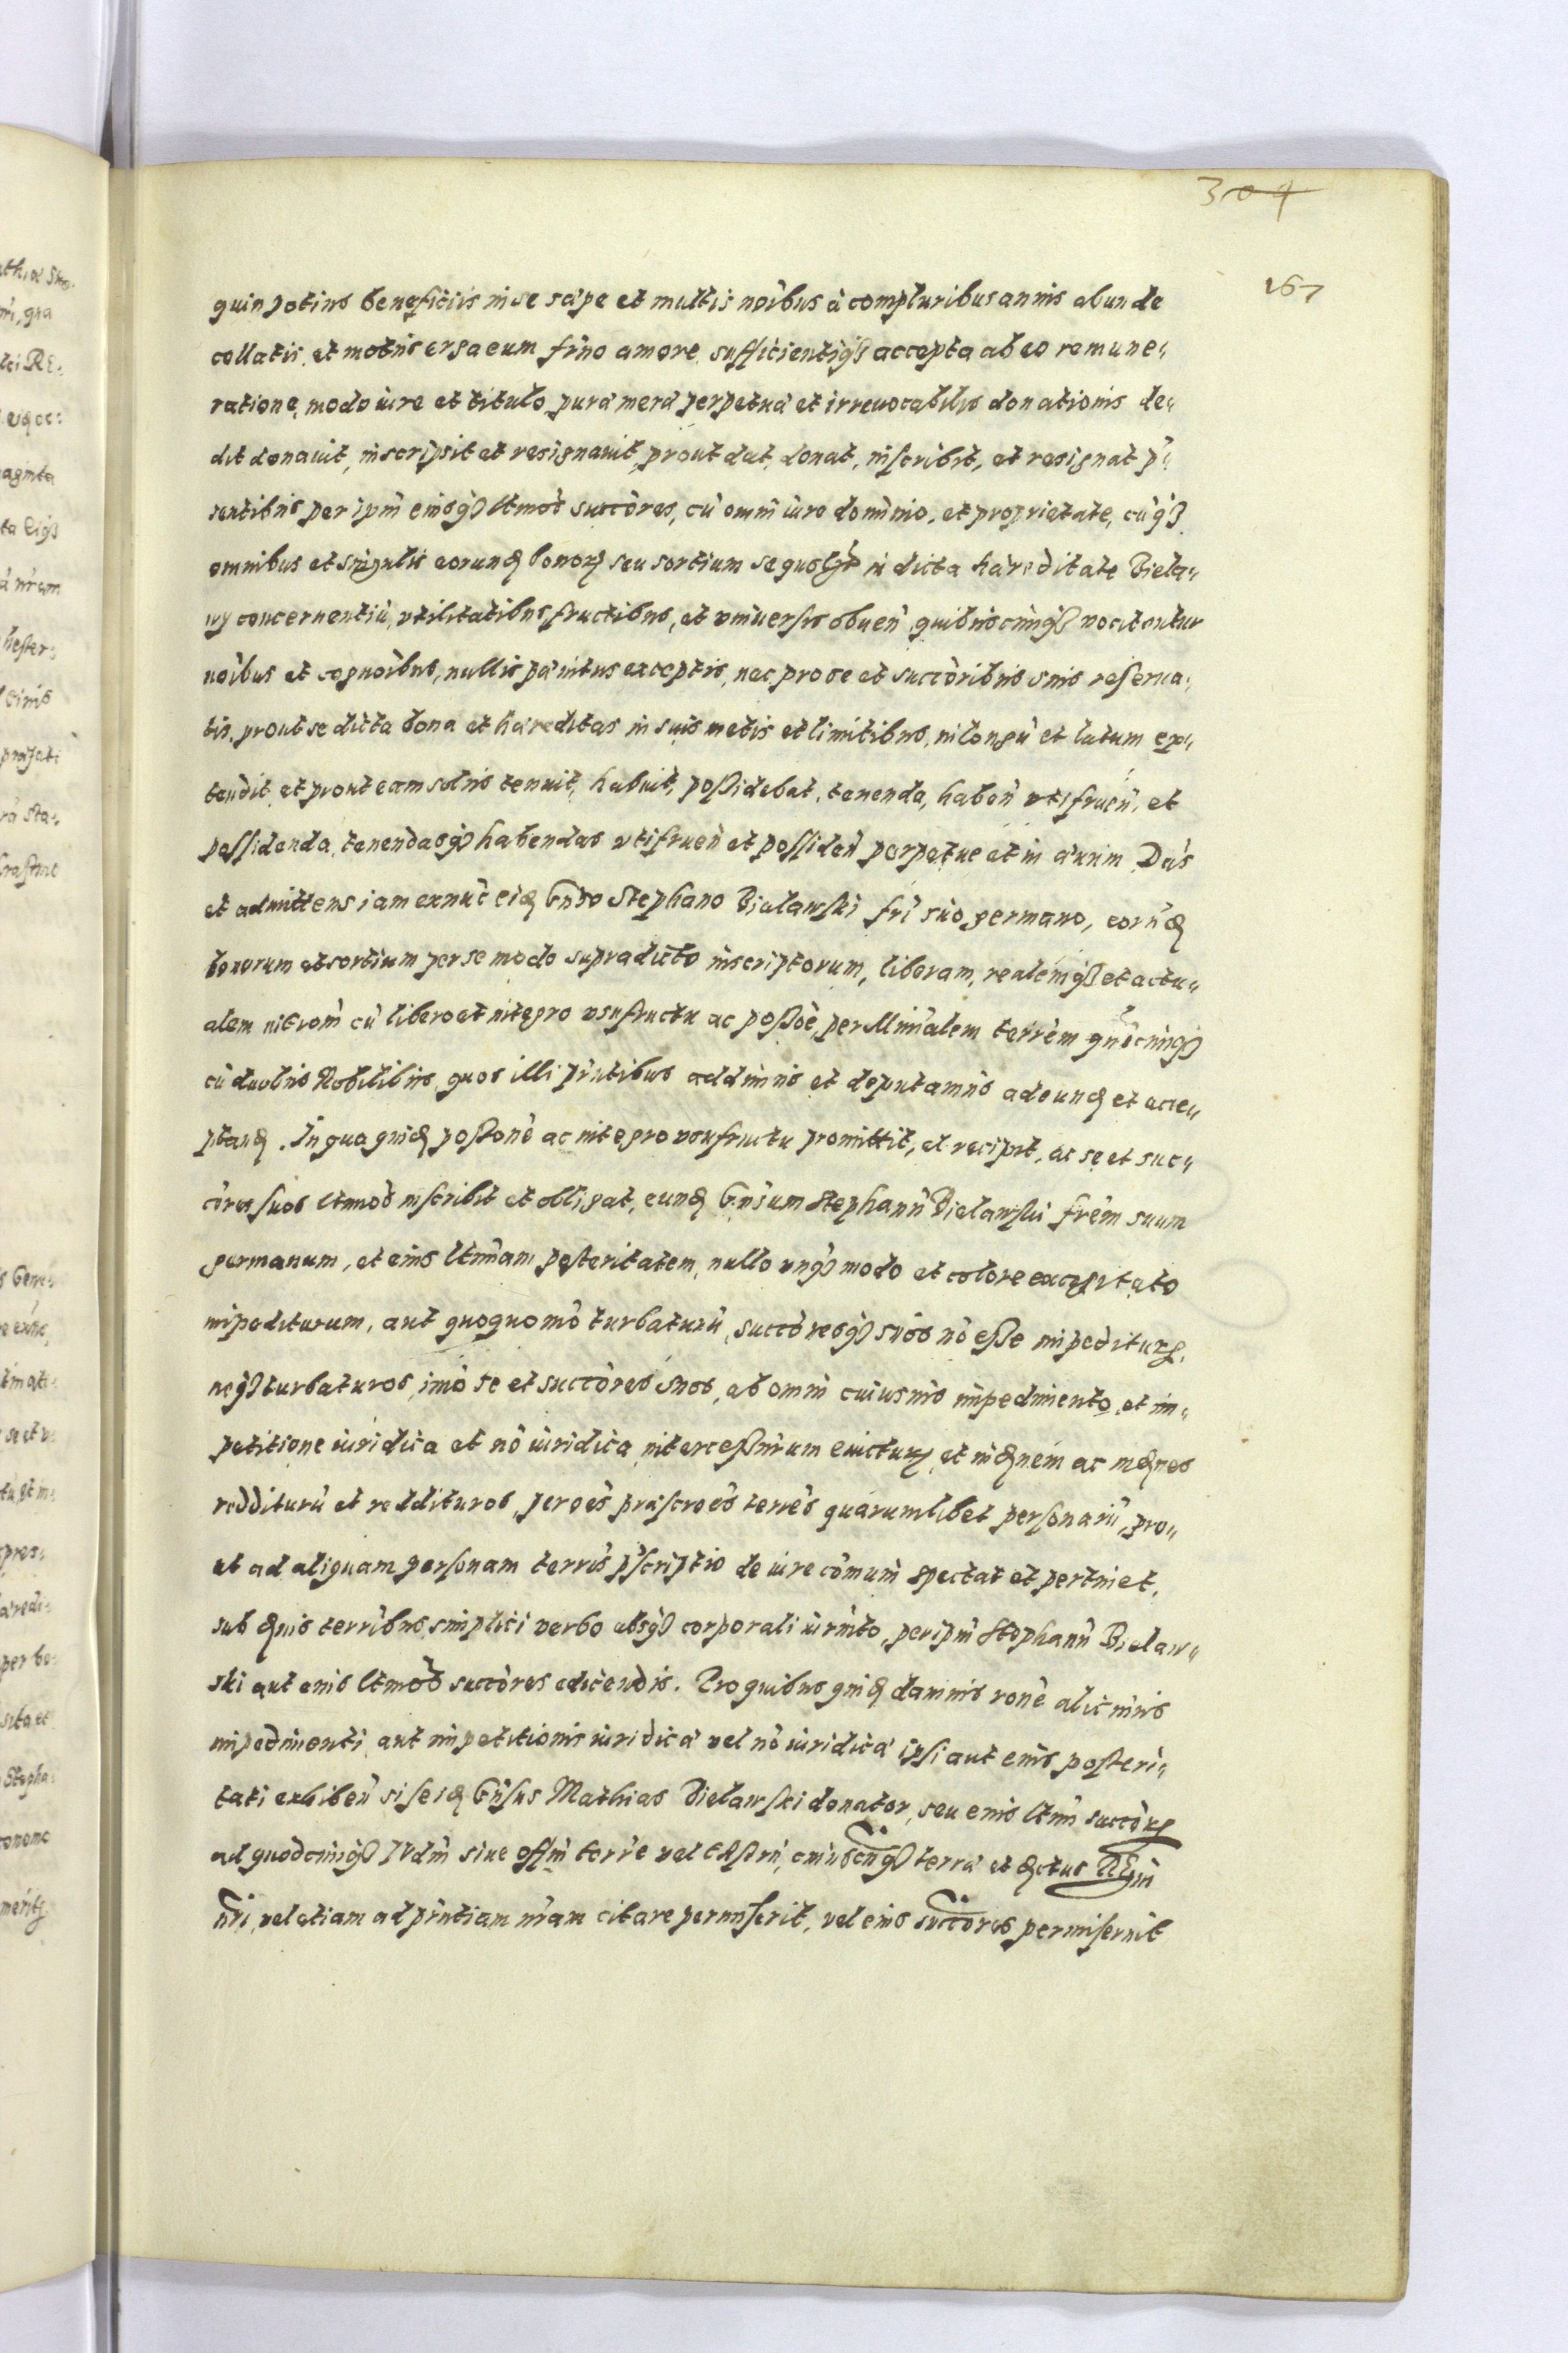 304
167
quin potius beneficiis in se sæpe et multis noibus à compluribus annis abunde
collatis. et motus erga eum frno amore sufficientiq3 accepta ab eo remune„
ratione, modo iure et titulo puræ meræ perpetuæ et irreuocabilis donationis de„
dit donauit, inscripsit et resignauit, prout dat, donat, inscribit, et resignat p„
sentibus per ipm eiusq3 ltmos succores, cu omni iure dominio, et proprietate, cuq3
omnibus et singulis eorund bonor seu sortium se quoslt in dicta hæreditate Biela„
wy concernentiu, vtilitatibus fructibus, et vniuersis obuen quibuscunq3 vocitentur
noibus et cognoibus, nullis pænitus exceptis, nec pro se et succoribus suis reserua„
tis, prout se dicta bona et hæreditas in suis metis et limitibus, in longu et latum ex„
tendit, et prout eam solus tenuit, habuit, possidebat, tenenda, haben vtifruen, et
possidenda, tenendasq3 habendas vtifruen et possiden perpetue et in æuum. Dás
et admittens iam exnuc eid Gnso Stephano Bielawski fri suo germano, eorud
bonorum et sortium per se modo supradicto inscriptorum, liberam, realemq3 et actu„
alem introm cu libero et integro vsufructu ac possoe, per Minialem terrem quecunq3
cu duobus Nobilibus, quos illi pntibus addimus et deputamus adeund et acce„
ptand. In qua quid possone ac integro vsufructu promittit, et recipit, ac se et suc„
cores suos ltmos inscribit et obligat, eund Gnsum Stephanu Bielawski frem suum
germanum, et eius ltmam posteritatem, nullo vnq3 modo et colore excogitato
impediturum, aut quoquomo turbaturu, succoresq3 suos no esse impeditur,
neq3 turbaturos, imo se et succores suos, ab omni cuiusuis impedimento et im„
petitione iuridica et no iuridica intercessurum euictur, et indnem ac indnes
redditurum et reddituros, per oes præscroes terres quarumlibet personaru, pro„
ut ad aliquam personam terris pscriptio de iure comuni spectat et pertinet,
sub dnis terribus simplici verbo absq3 corporali iurmto, per ipm Stephanu Bielaw„
ski aut eius ltmos succores edicendis. Pro quibus quid damnis rone alicuius
impedimenti aut impetitionis iuridicæ vel no iuridicæ ipsi aut eius posteri„
tati exhiben si se id Gnsus Mathias Bielawski donator, seu eius ltmi succor
ad quodcunq3 Iudm siue offm terre vel castrn, cuiuscunq3 terræ et dctus REgni
nri, vel etiam ad pntiam nram citare permiserit, vel eius succores permiserint